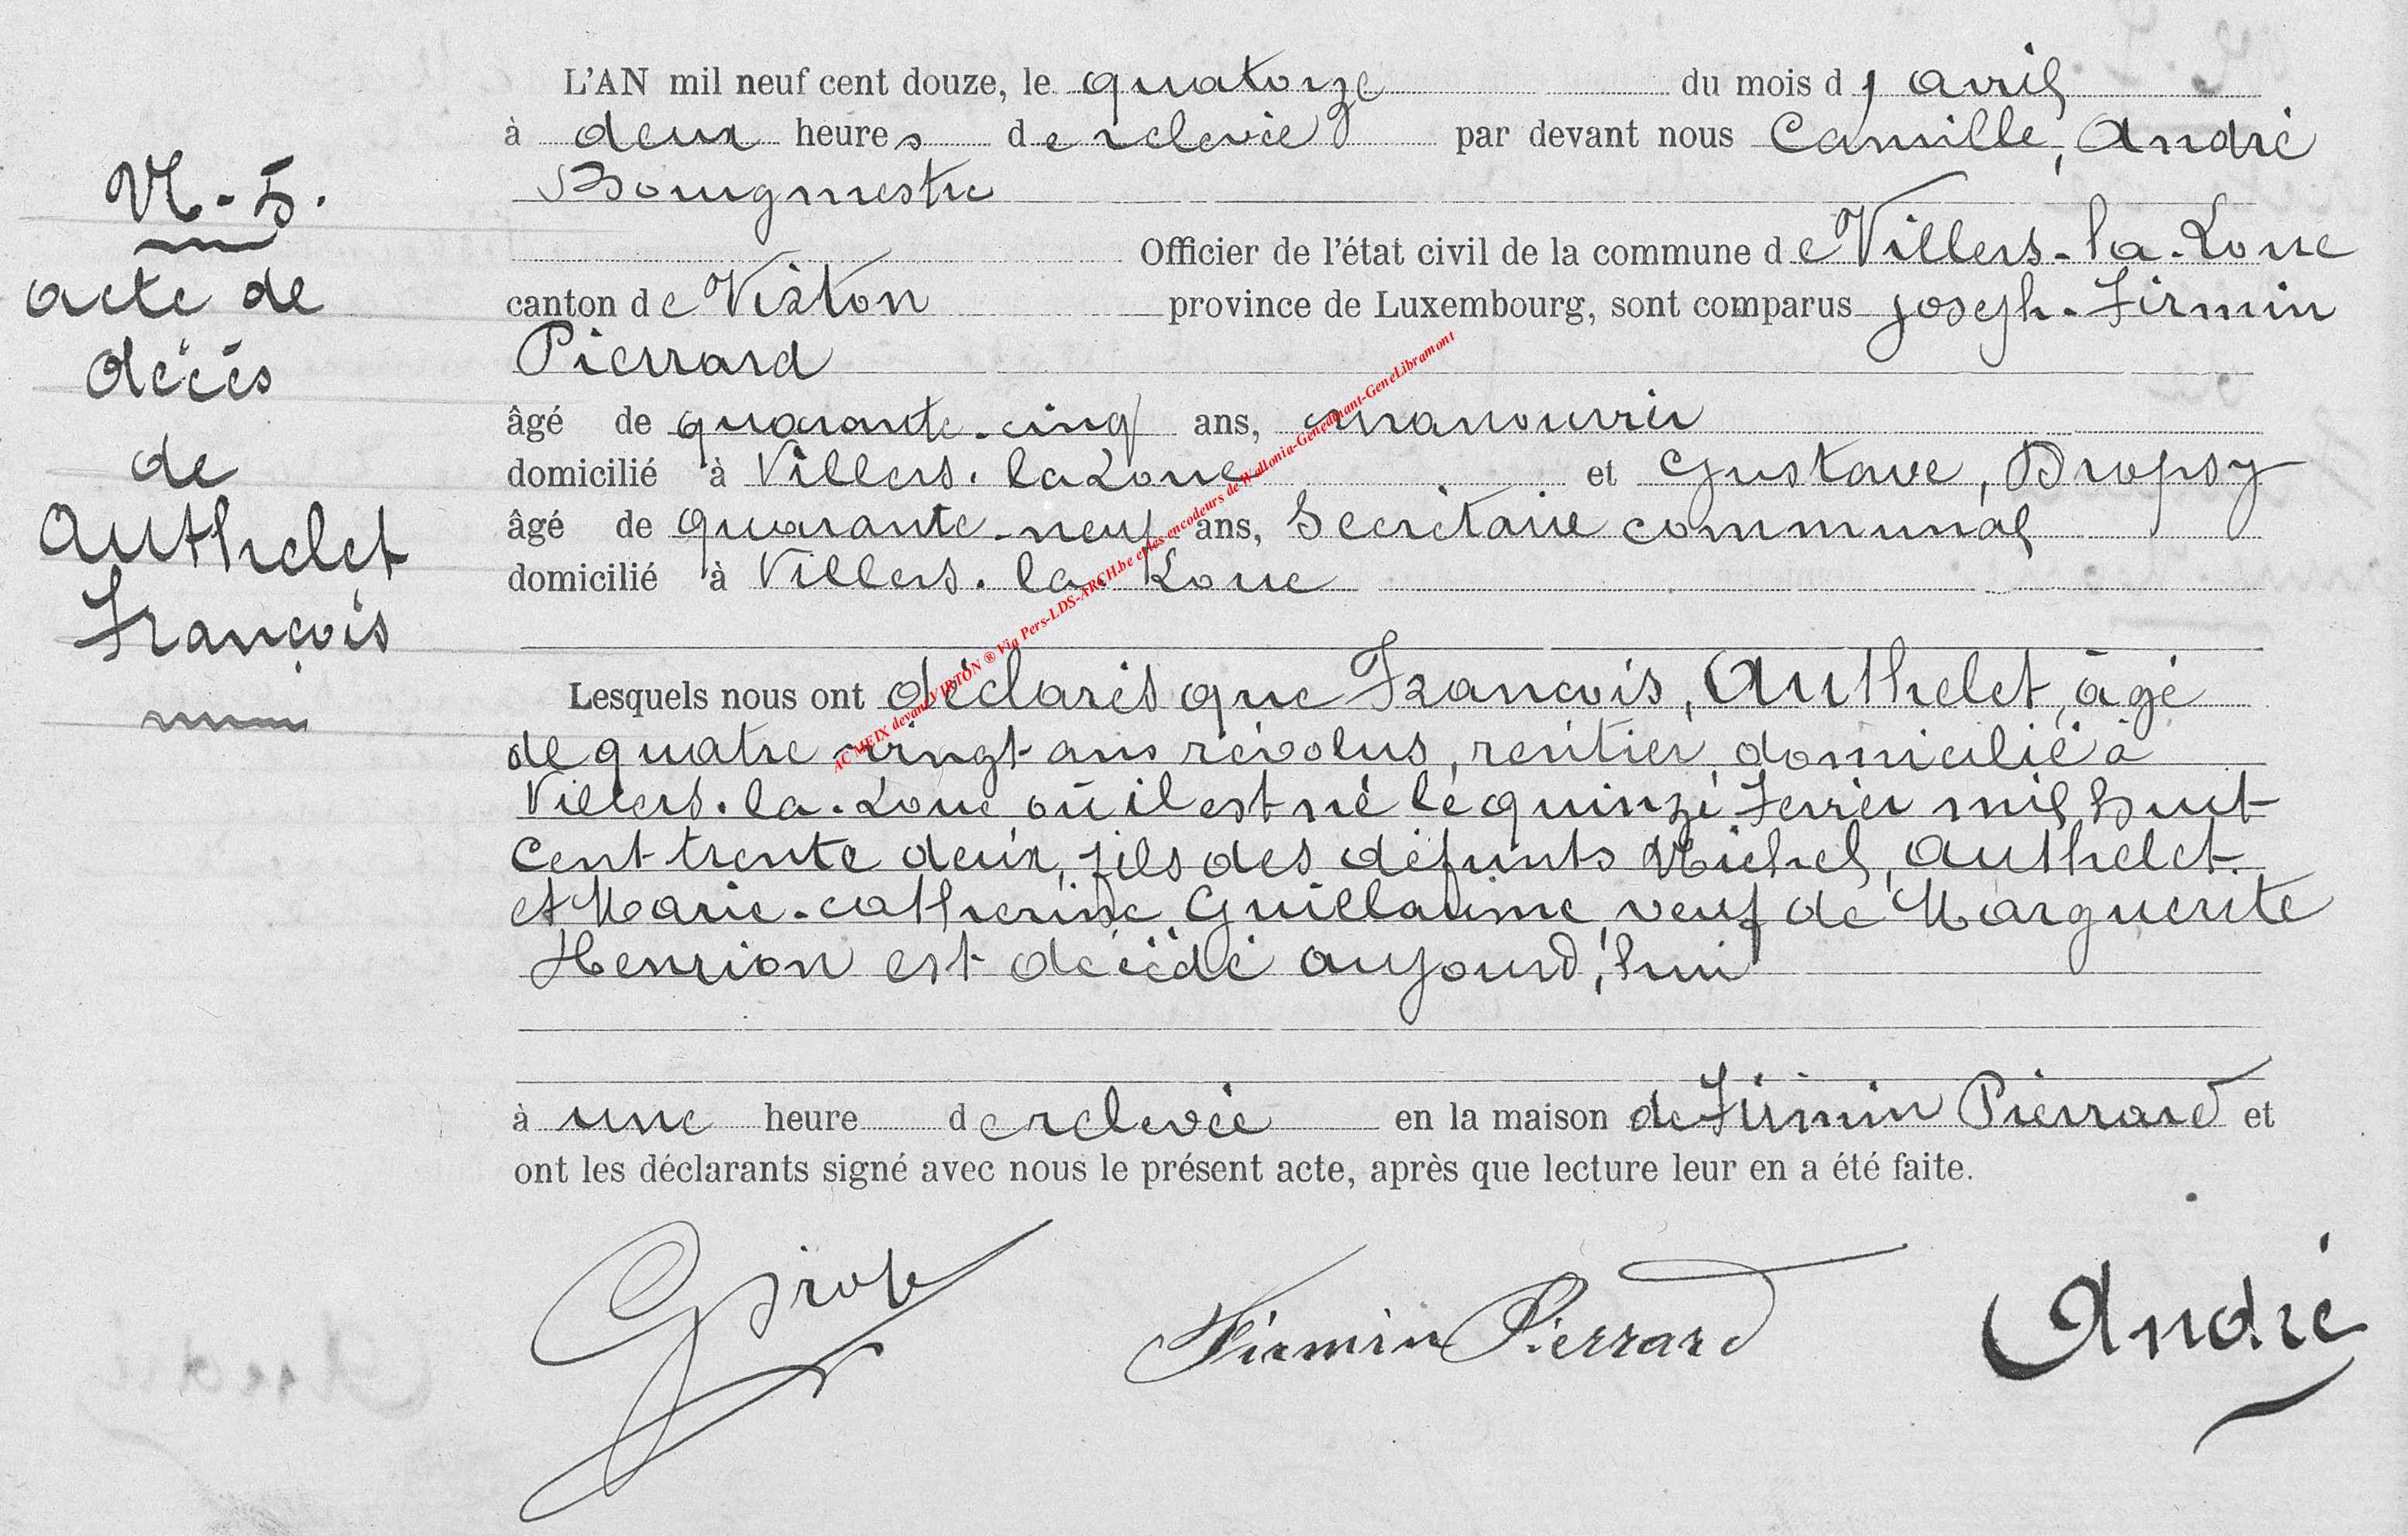 N. 5.
acte de
décès
de
Authelet
François
L'AN mil neuf cent douze, le quatorze du mois d' avril
à deux heures de relevée par devant nous Camille, André
Bourgmestre
Officier de l'état civil de la commune de Villers-la-Loue
canton de Virton province de Luxembourg, sont comparus Joseph-Firmin
Pierrard
âgé de quarante-cinq ans, manouvrier
domicilié à Villers-la Loue et Gustave, Dropsy
âgé de quarante-neuf ans, Secrétaire communal
domicilié à Villers-la Loue
Lesquels nous ont déclarés que François, Authelet, âgé
de quatre-vingt ans révolus, rentier, domicilié à
Villers-la-Loue où il est né le quinze Fevrier mil huit
Cent trente deux, fils des défunts Michel, Authelet
et Marie-catherine Guillaume, veuf de Marguerite
Henrion est décédé aujourd'hui
à une heure de relevée en la maison de Firmin Pierrard et
ont les déclarants signé avec nous le présent acte, après que lecture leur en a été faite.
Firmin Pierrard André
AC MEIX devant VIRTON ® Via Pers-LDS-ARCH.be et les encodeurs de Wallonia-Genedinant-GeneLibramont